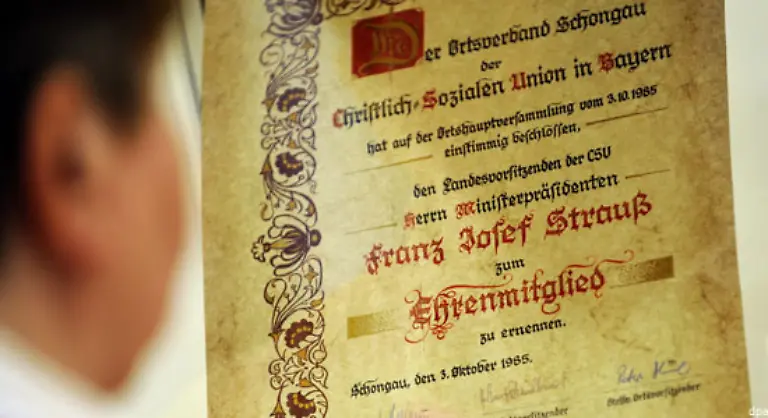 Der Ortsverband Schongau
der
Christlich-Sozialen Union in Bayern
hat auf der Ortshauptversammlung vom 3.10.1985
einstimmig beschlossen,
den Landesvorsitzenden der CSU
Herrn Ministerpräsidenten
Franz Josef Strauß
zum
Ehrenmitglied
zu ernennen.
Schongau, den 3. Oktober 1985.
Ortsvorsitzender
dpa